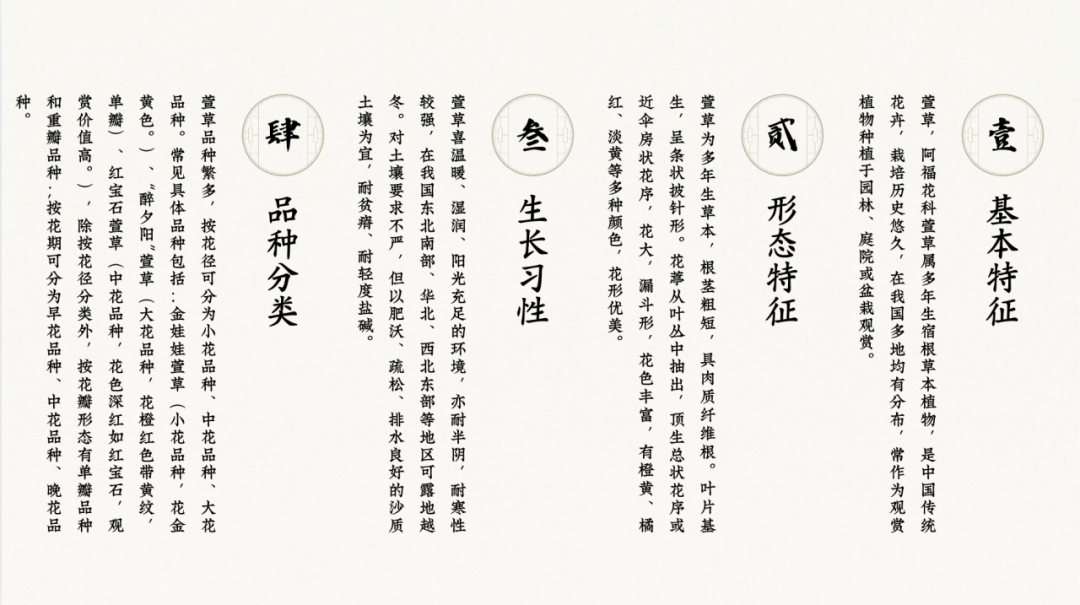 壹
基本特征
萱草，阿福花科萱草属多年生宿根草本植物，是中国传统
花卉，栽培历史悠久，在我国多地均有分布，常作为观赏
植物种植于园林、庭院或盆栽观赏。
贰
形态特征
萱草为多年生草本，根茎粗短，具肉质纤维根。叶片基
生，呈条状披针形。花葶从叶丛中抽出，顶生总状花序或
近伞房状花序，花大，漏斗形，花色丰富，有橙黄、橘
红、淡黄等多种颜色，花形优美。
叁
生长习性
萱草喜温暖、湿润、阳光充足的环境，亦耐半阴，耐寒性
较强，在我国东北南部、华北、西北东部等地区可露地越
冬。对土壤要求不严，但以肥沃、疏松、排水良好的沙质
土壤为宜，耐贫瘠、耐轻度盐碱。
肆
品种分类
萱草品种繁多，按花径可分为小花品种、中花品种、大花
品种。常见具体品种包括：金娃娃萱草（小花品种，花金
黄色。）、“醉夕阳”萱草（大花品种，花橙红色带黄纹，
单瓣）、红宝石萱草（中花品种，花色深红如红宝石，观
赏价值高。），除按花径分类外，按花瓣形态有单瓣品种
和重瓣品种；按花期可分为早花品种、中花品种、晚花品
种。